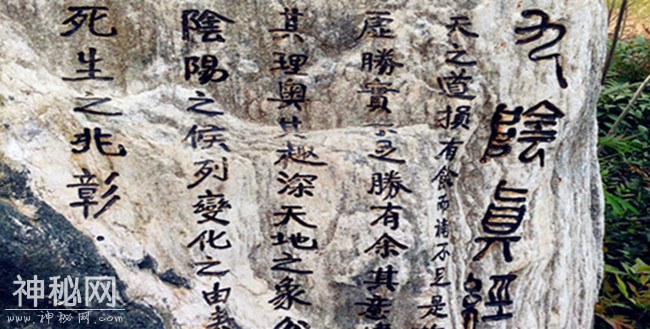 九陰眞經
天之道損有餘而補不足是
虛勝實不足勝有余其意
其理奥其趣深天地之象分
陰陽之候列變化之由表
死生之兆彰.
神秘网
WWW.神秘网.COM